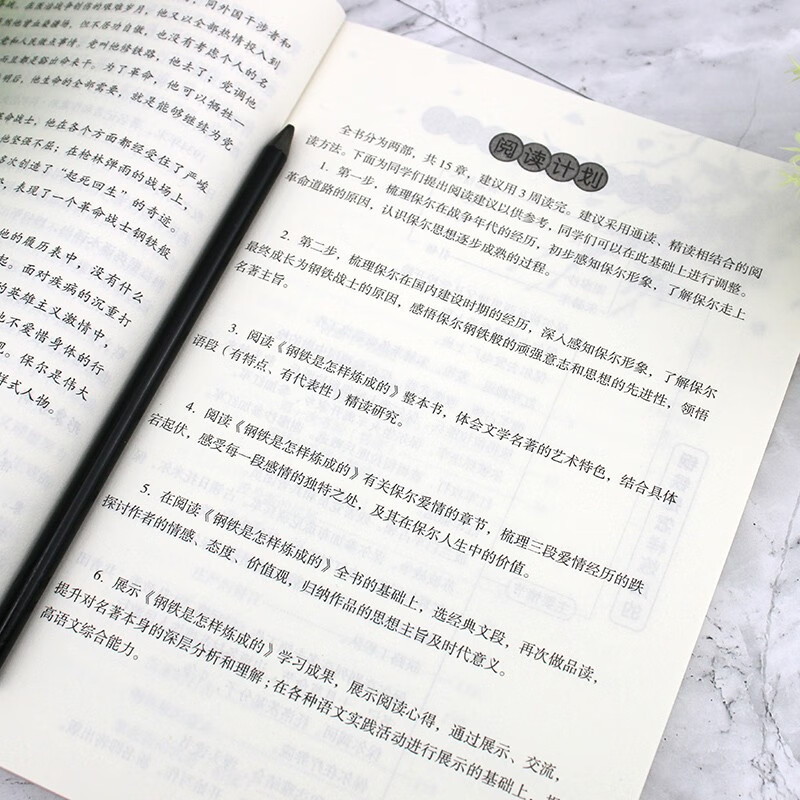 同外国干涉者和
他又以全部热情投入到
但不居功自傲，也没有考虑个人的名
党叫他修铁路，他去了；党调他
为了革命，他可以牺牲一
他生命的全部需要，就是能够继续为党
命战士，他在各个方面都经受住了严峻
他坚强不屈；在枪林弹雨的战场上，
多次创造了“起死回生”的奇迹。
表现了一个革命战士钢铁般
他的履历表中，没有什么
面对疾病的沉重打
的英雄主义激情中，
也不爱惜身体的行
保尔是伟大
样式人物。
阅读计划
全书分为两部，共15章，建议用3周读完。建议采用通读、精读相结合的阅
读方法。下面为同学们提出阅读建议以供参考，同学们可以在此基础上进行调整。
1. 第一步，梳理保尔在战争年代的经历，初步感知保尔形象，了解保尔走上
革命道路的原因，认识保尔思想逐步成熟的过程。
2. 第二步，梳理保尔在国内建设时期的经历，深入感知保尔形象，了解保尔
最终成长为钢铁战士的原因，感悟保尔钢铁般的顽强意志和思想的先进性，领悟
名著主旨。
3. 阅读《钢铁是怎样炼成的》整本书，体会文学名著的艺术特色，结合具体
语段（有特点、有代表性）精读研究。
4. 阅读《钢铁是怎样炼成的》有关保尔爱情的章节，梳理三段爱情经历的跌
宕起伏，感受每一段感情的独特之处，及其在保尔人生中的价值。
5. 在阅读《钢铁是怎样炼成的》全书的基础上，选经典文段，再次做品读，
探讨作者的情感、态度、价值观，归纳作品的思想主旨及时代意义。
6. 展示《钢铁是怎样炼成的》学习成果，展示阅读心得，通过展示、交流，
提升对名著本身的深层分析和理解；在各种语文实践活动进行展示的基础上，提
高语文综合能力。